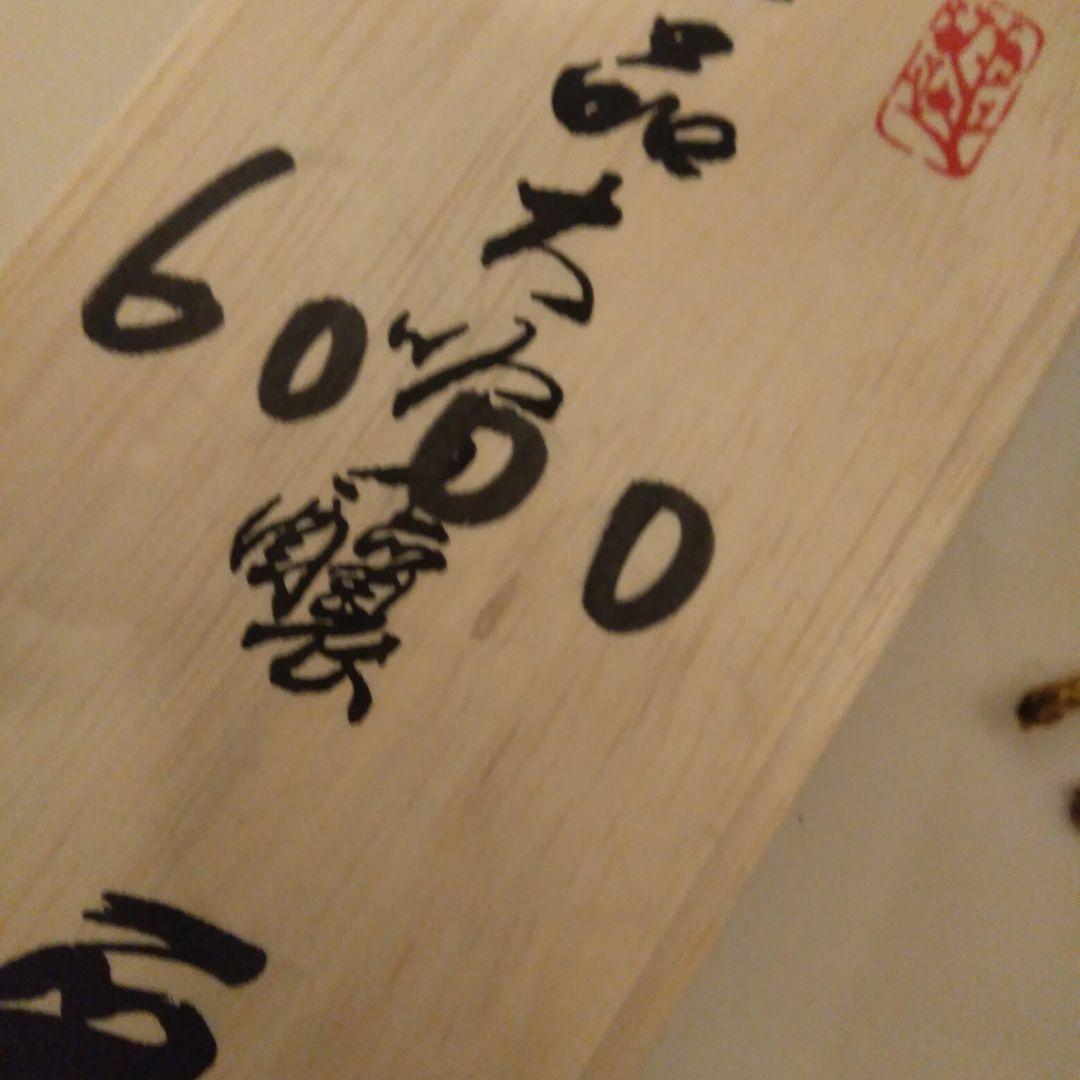 品大吟醸
6000